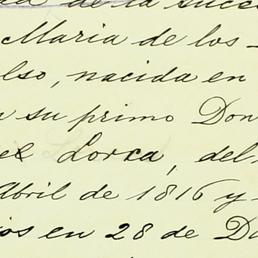 de la suce
Maria de los
lso, nacida en
su primo Don
es Lorca, del
Abril de 1816 y
ios en 28 de D